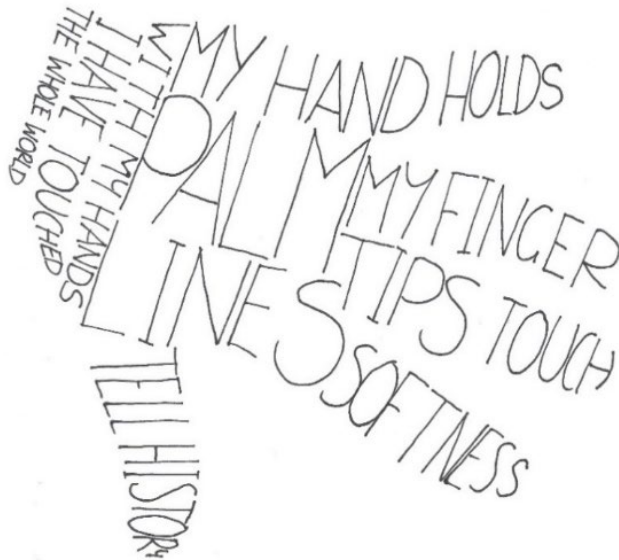 MY HAND HOLDS
PALM
MY FINGER
TIPS TOUCH
LINES
SOFTNESS
TELL HISTORY
WITH MY HANDS
I HAVE TOUCHED
THE WHOLE WORLD